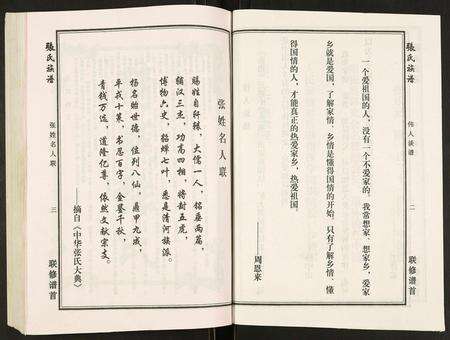 張氏族谱
伟人谈谱
二
联修谱首
一个爱祖国的人，没有一个不爱家的。我常想家，想家乡，爱家
乡就是爱国，了解家情、乡情是懂得国情的开始，只有了解乡情、懂
得国情的人，才能真正的热爱家乡，热爱祖国。
——周恩来
张姓名人联
赐姓自轩辕，大儒一人，铭垂两篇，
辅汉三杰，功高四相，将封五虎，
博物六史，貂蝉七叶，悉是清河旅派。
杨名贻世德，位列八仙，鼎甲九成，
平戎十策，书忍百字，金鉴千秋，
青钱万选，道隆亿尊，依然文献宗支。
——摘自《中华张氏大典》
張氏族谱
张姓名人联
三
联修谱首